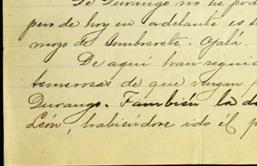 De Durango no he pod
pero de hoy en adelante es
mozo de Sombrerete. Ojalá
De aquí han seguid
temerosas de que vengan
Durango. También la d
León, habiéndose ido él p